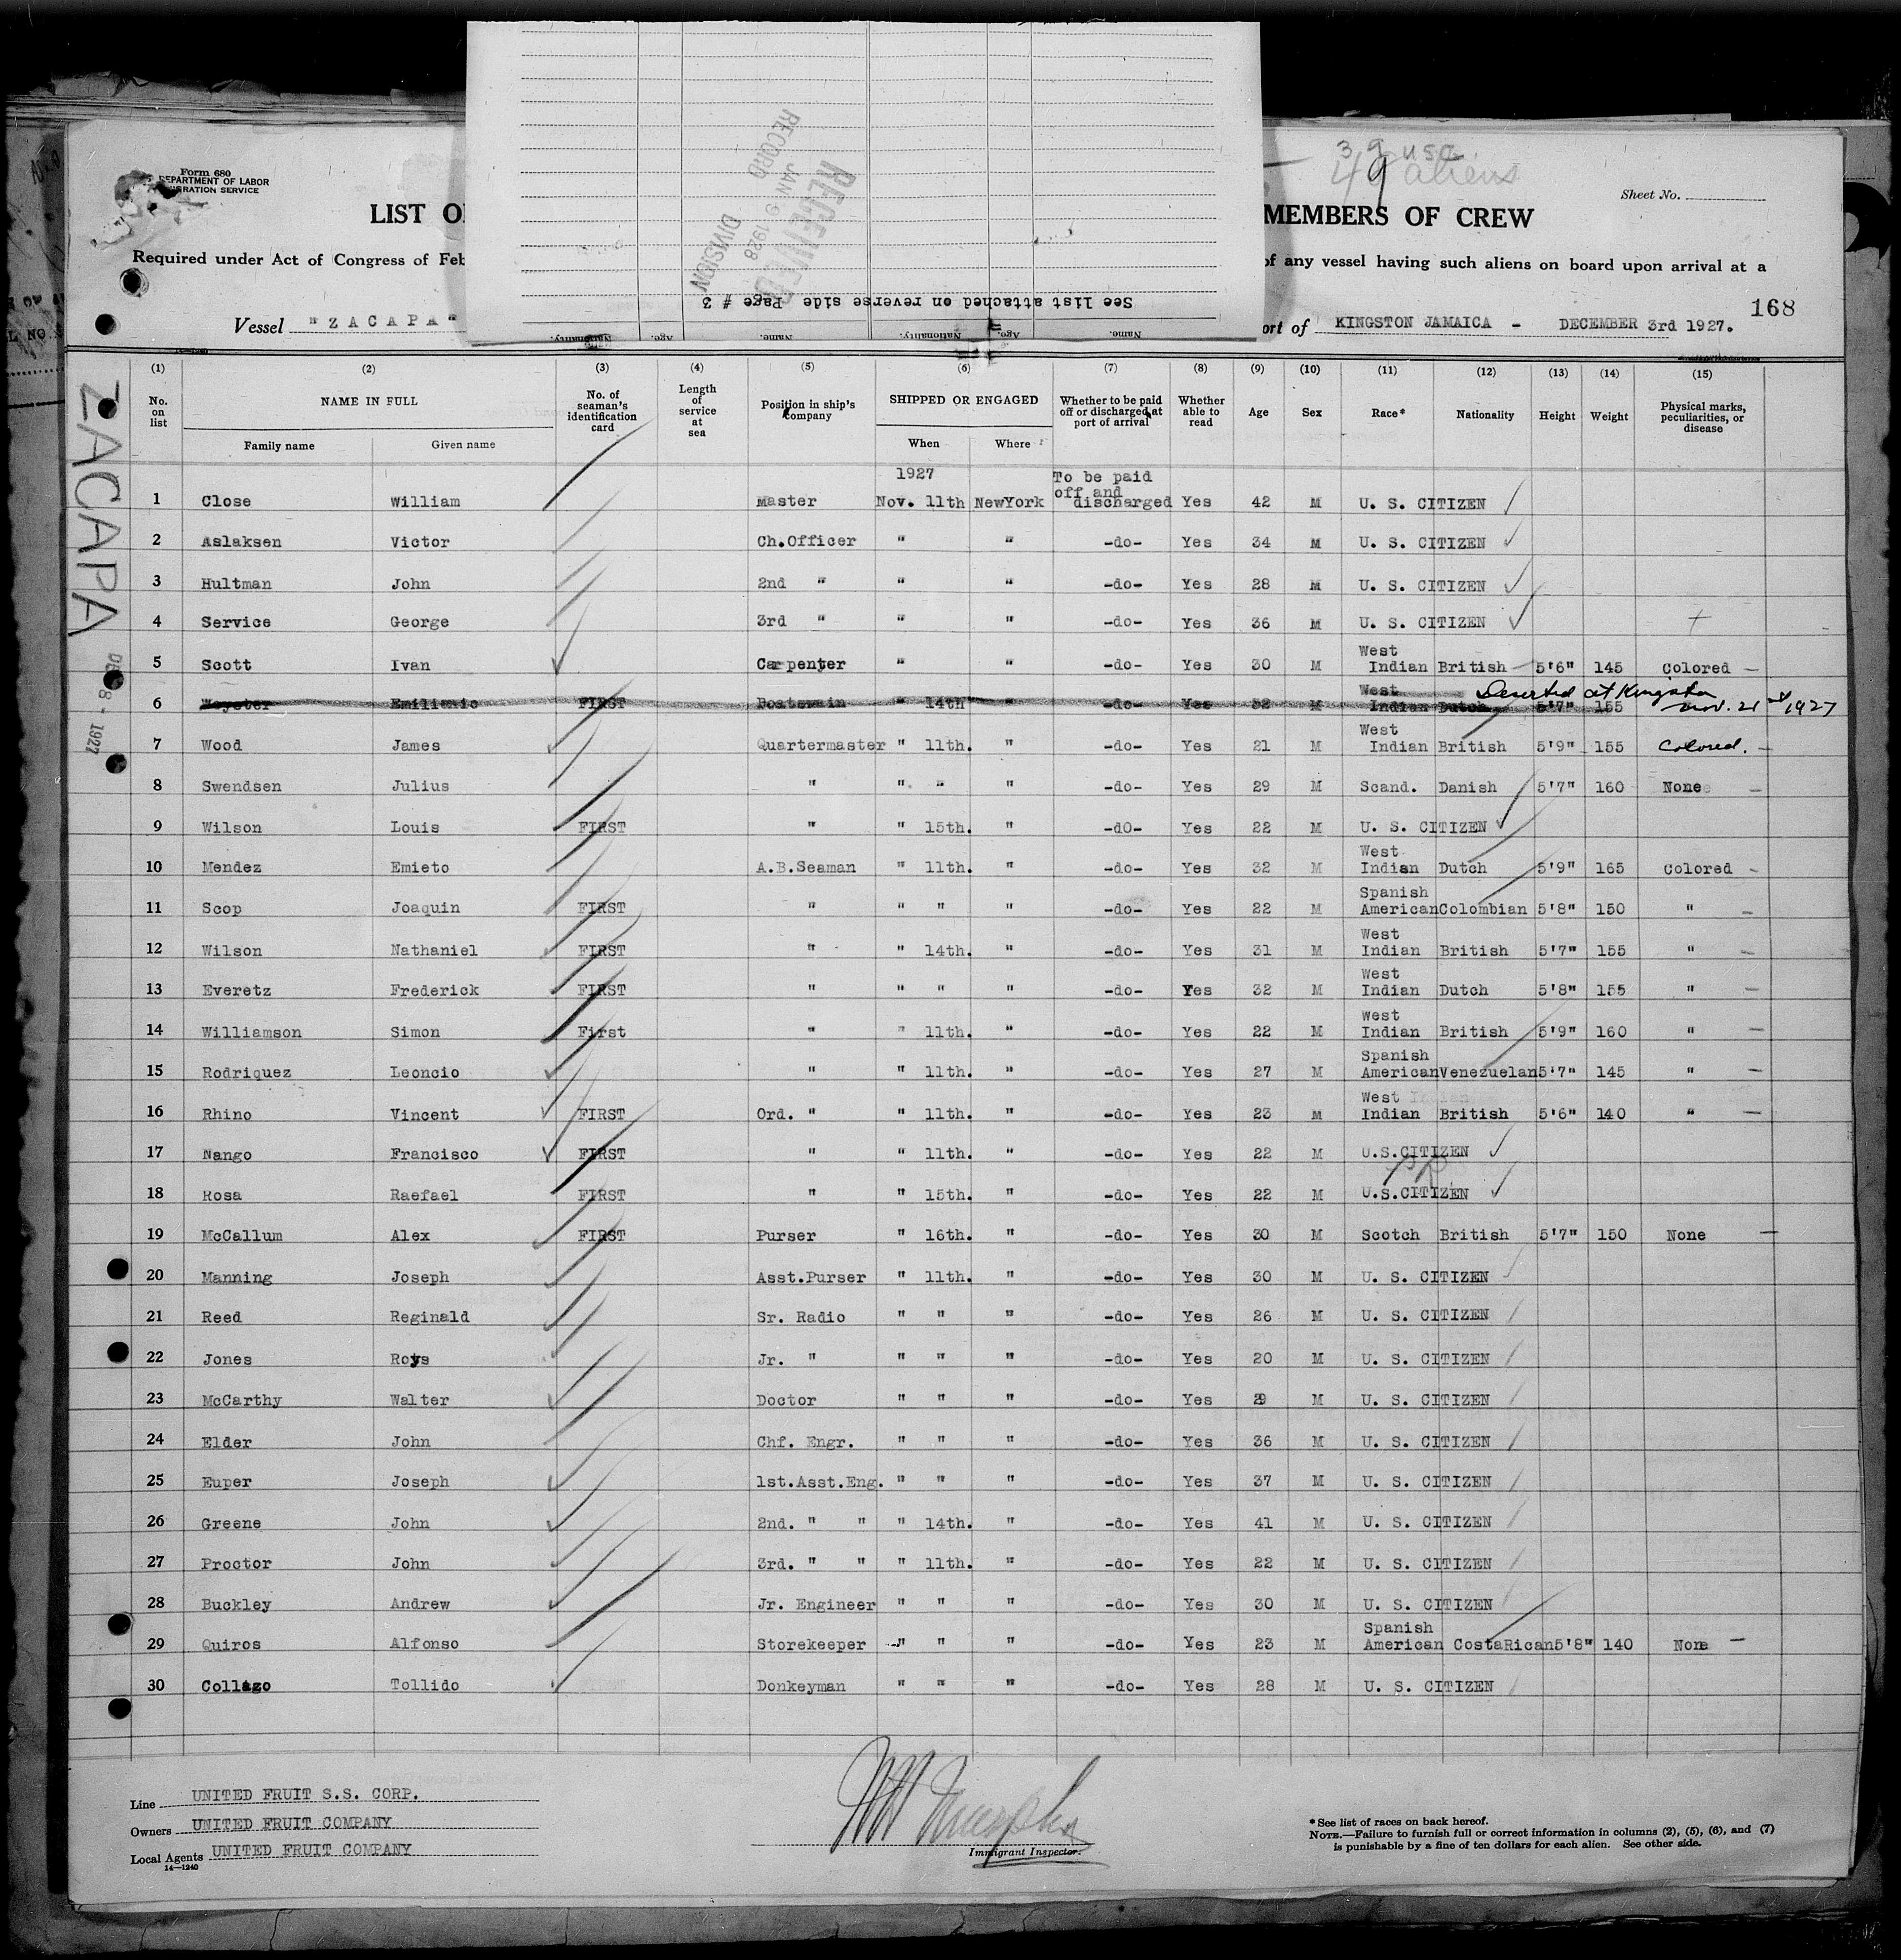 Form 680
DEPARTMENT OF LABOR
IMMIGRATION SERVICE
39 USC
49 aliens
Sheet No.
LIST O MEMBERS OF CREW
Required under Act of Congress of Feb of any vessel having such aliens on board upon arrival at a
168
Vessel "ZACAPA" ort of KINGSTON JAMAICA - DECEMBER 3rd 1927.
RECEIVED
JAN 9 1928
RECORD DIVISION
See list attached on reverse side Page # 3
Name. Age. Nationality. Name. Age. Nationality.
ZACAPA
8 - 1927
(1) (2) (3) (4) (5) (6) (7) (8) (9) (10) (11) (12) (13) (14) (15)
No. on list NAME IN FULL No. of seaman's identification card Length of service at sea Position in ship's company SHIPPED OR ENGAGED Whether to be paid off or discharged at port of arrival Whether able to read Age Sex Race* Nationality Height Weight Physical marks, peculiarities, or disease
Family name Given name When Where
1927 To be paid off and
1 Close William Master Nov. 11th NewYork discharged Yes 42 M U. S. CITIZEN
2 Aslaksen Victor Ch.Officer " " -do- Yes 34 M U. S. CITIZEN
3 Hultman John 2nd " " " -do- Yes 28 M U. S. CITIZEN
4 Service George 3rd " " " -do- Yes 36 M U. S. CITIZEN
5 Scott Ivan Carpenter " " -do- Yes 30 M West Indian British 5'6" 145 Colored -
6 Weyster FIRST Boatswain " 14th " -do- Yes 32 M West Indian Dutch 5'7" 155 Deserted at Kingston Nov. 21st 1927
7 Wood James Quartermaster " 11th. " -do- Yes 21 M West Indian British 5'9" 155 Colored. -
8 Swendsen Julius " " " " -do- Yes 29 M Scand. Danish 5'7" 160 None -
9 Wilson Louis FIRST " " 15th. " -dO- Yes 22 M U. S. CITIZEN
10 Mendez Emieto A.B.Seaman " 11th. " -do- Yes 32 M West Indian Dutch 5'9" 165 Colored -
11 Scop Joaquin FIRST " " " " -do- Yes 22 M Spanish American Colombian 5'8" 150 " -
12 Wilson Nathaniel FIRST " " 14th. " -do- Yes 31 M West Indian British 5'7" 155 " -
13 Everetz Frederick FIRST " " " " -do- Yes 32 M West Indian Dutch 5'8" 155 " -
14 Williamson Simon First " " 11th. " -do- Yes 22 M West Indian British 5'9" 160 " -
15 Rodriquez Leoncio " " 11th. " -do- Yes 27 M Spanish American Venezuelan 5'7" 145 " -
16 Rhino Vincent FIRST Ord. " " 11th. " -do- Yes 23 M West Indian British 5'6" 140 " -
17 Nango Francisco FIRST " " 11th. " -do- Yes 22 M U.S.CITIZEN
18 Rosa Raefael FIRST " " 15th. " -do- Yes 22 M U.S.CITIZEN
19 McCallum Alex FIRST Purser " 16th. " -do- Yes 30 M Scotch British 5'7" 150 None -
20 Manning Joseph Asst.Purser " 11th. " -do- Yes 30 M U. S. CITIZEN
21 Reed Reginald Sr. Radio " " " -do- Yes 26 M U. S. CITIZEN
22 Jones Jr. " " " " -do- Yes 20 M U. S. CITIZEN
23 McCarthy Walter Doctor " " " -do- Yes 29 M U. S. CITIZEN
24 Elder John Chf. Engr. " " " -do- Yes 36 M U. S. CITIZEN
25 Euper Joseph 1st.Asst.Eng. " " " -do- Yes 37 M U. S. CITIZEN
26 Greene John 2nd. " " " 14th. " -do- Yes 41 M U. S. CITIZEN
27 Proctor John 3rd. " " " 11th. " -do- Yes 22 M U. S. CITIZEN
28 Buckley Andrew Jr. Engineer " " " -do- Yes 30 M U. S. CITIZEN
29 Quiros Alfonso Storekeeper " " " -do- Yes 23 M Spanish American CostaRican 5'8" 140 None -
30 Collazo Tollido Donkeyman " " " -do- Yes 28 M U. S. CITIZEN
Line UNITED FRUIT S.S. CORP.
Owners UNITED FRUIT COMPANY
Local Agents UNITED FRUIT COMPANY
14-1240
Murphy
Immigrant Inspector.
*See list of races on back hereof.
NOTE.—Failure to furnish full or correct information in columns (2), (5), (6), and (7)
is punishable by a fine of ten dollars for each alien. See other side.